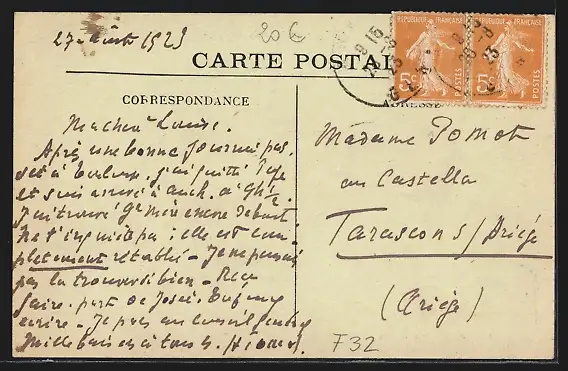 27 Août 1923
20 €
CARTE POSTALE
CORRESPONDANCE
ADRESSE
REPUBLIQUE FRANÇAISE
5c
POSTES
REPUBLIQUE FRANÇAISE
5c
POSTES
Ma chère Louise.
Après une bonne journée pas-
sée à Toulouse, j'ai quitté
et suis arrivé à Auch. à 9h ½
J'ai trouvé Gd Mère encore debout
Ne t'inquiète pas ; elle est com-
plètement rétablie - Je ne pensais
pas la trouver si bien -
faire part de
écrire - Je pars au conseil
Mille baisers à tous
Madame Pomot
au Castella
Tarascon s/ Ariège
(Ariège)
F32